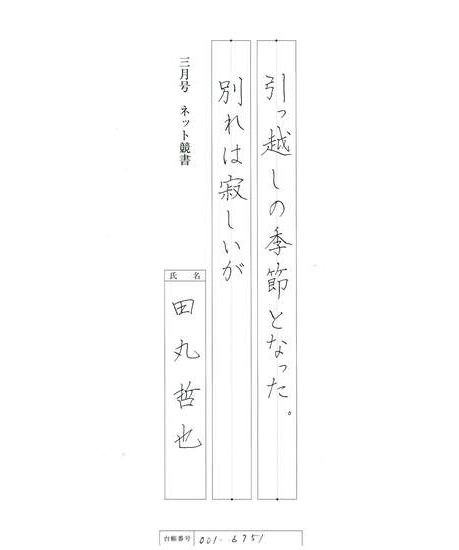 引っ越しの季節となった。
別れは寂しいが
三月号 ネット競書
氏名
田丸哲也
台帳番号 001-6751